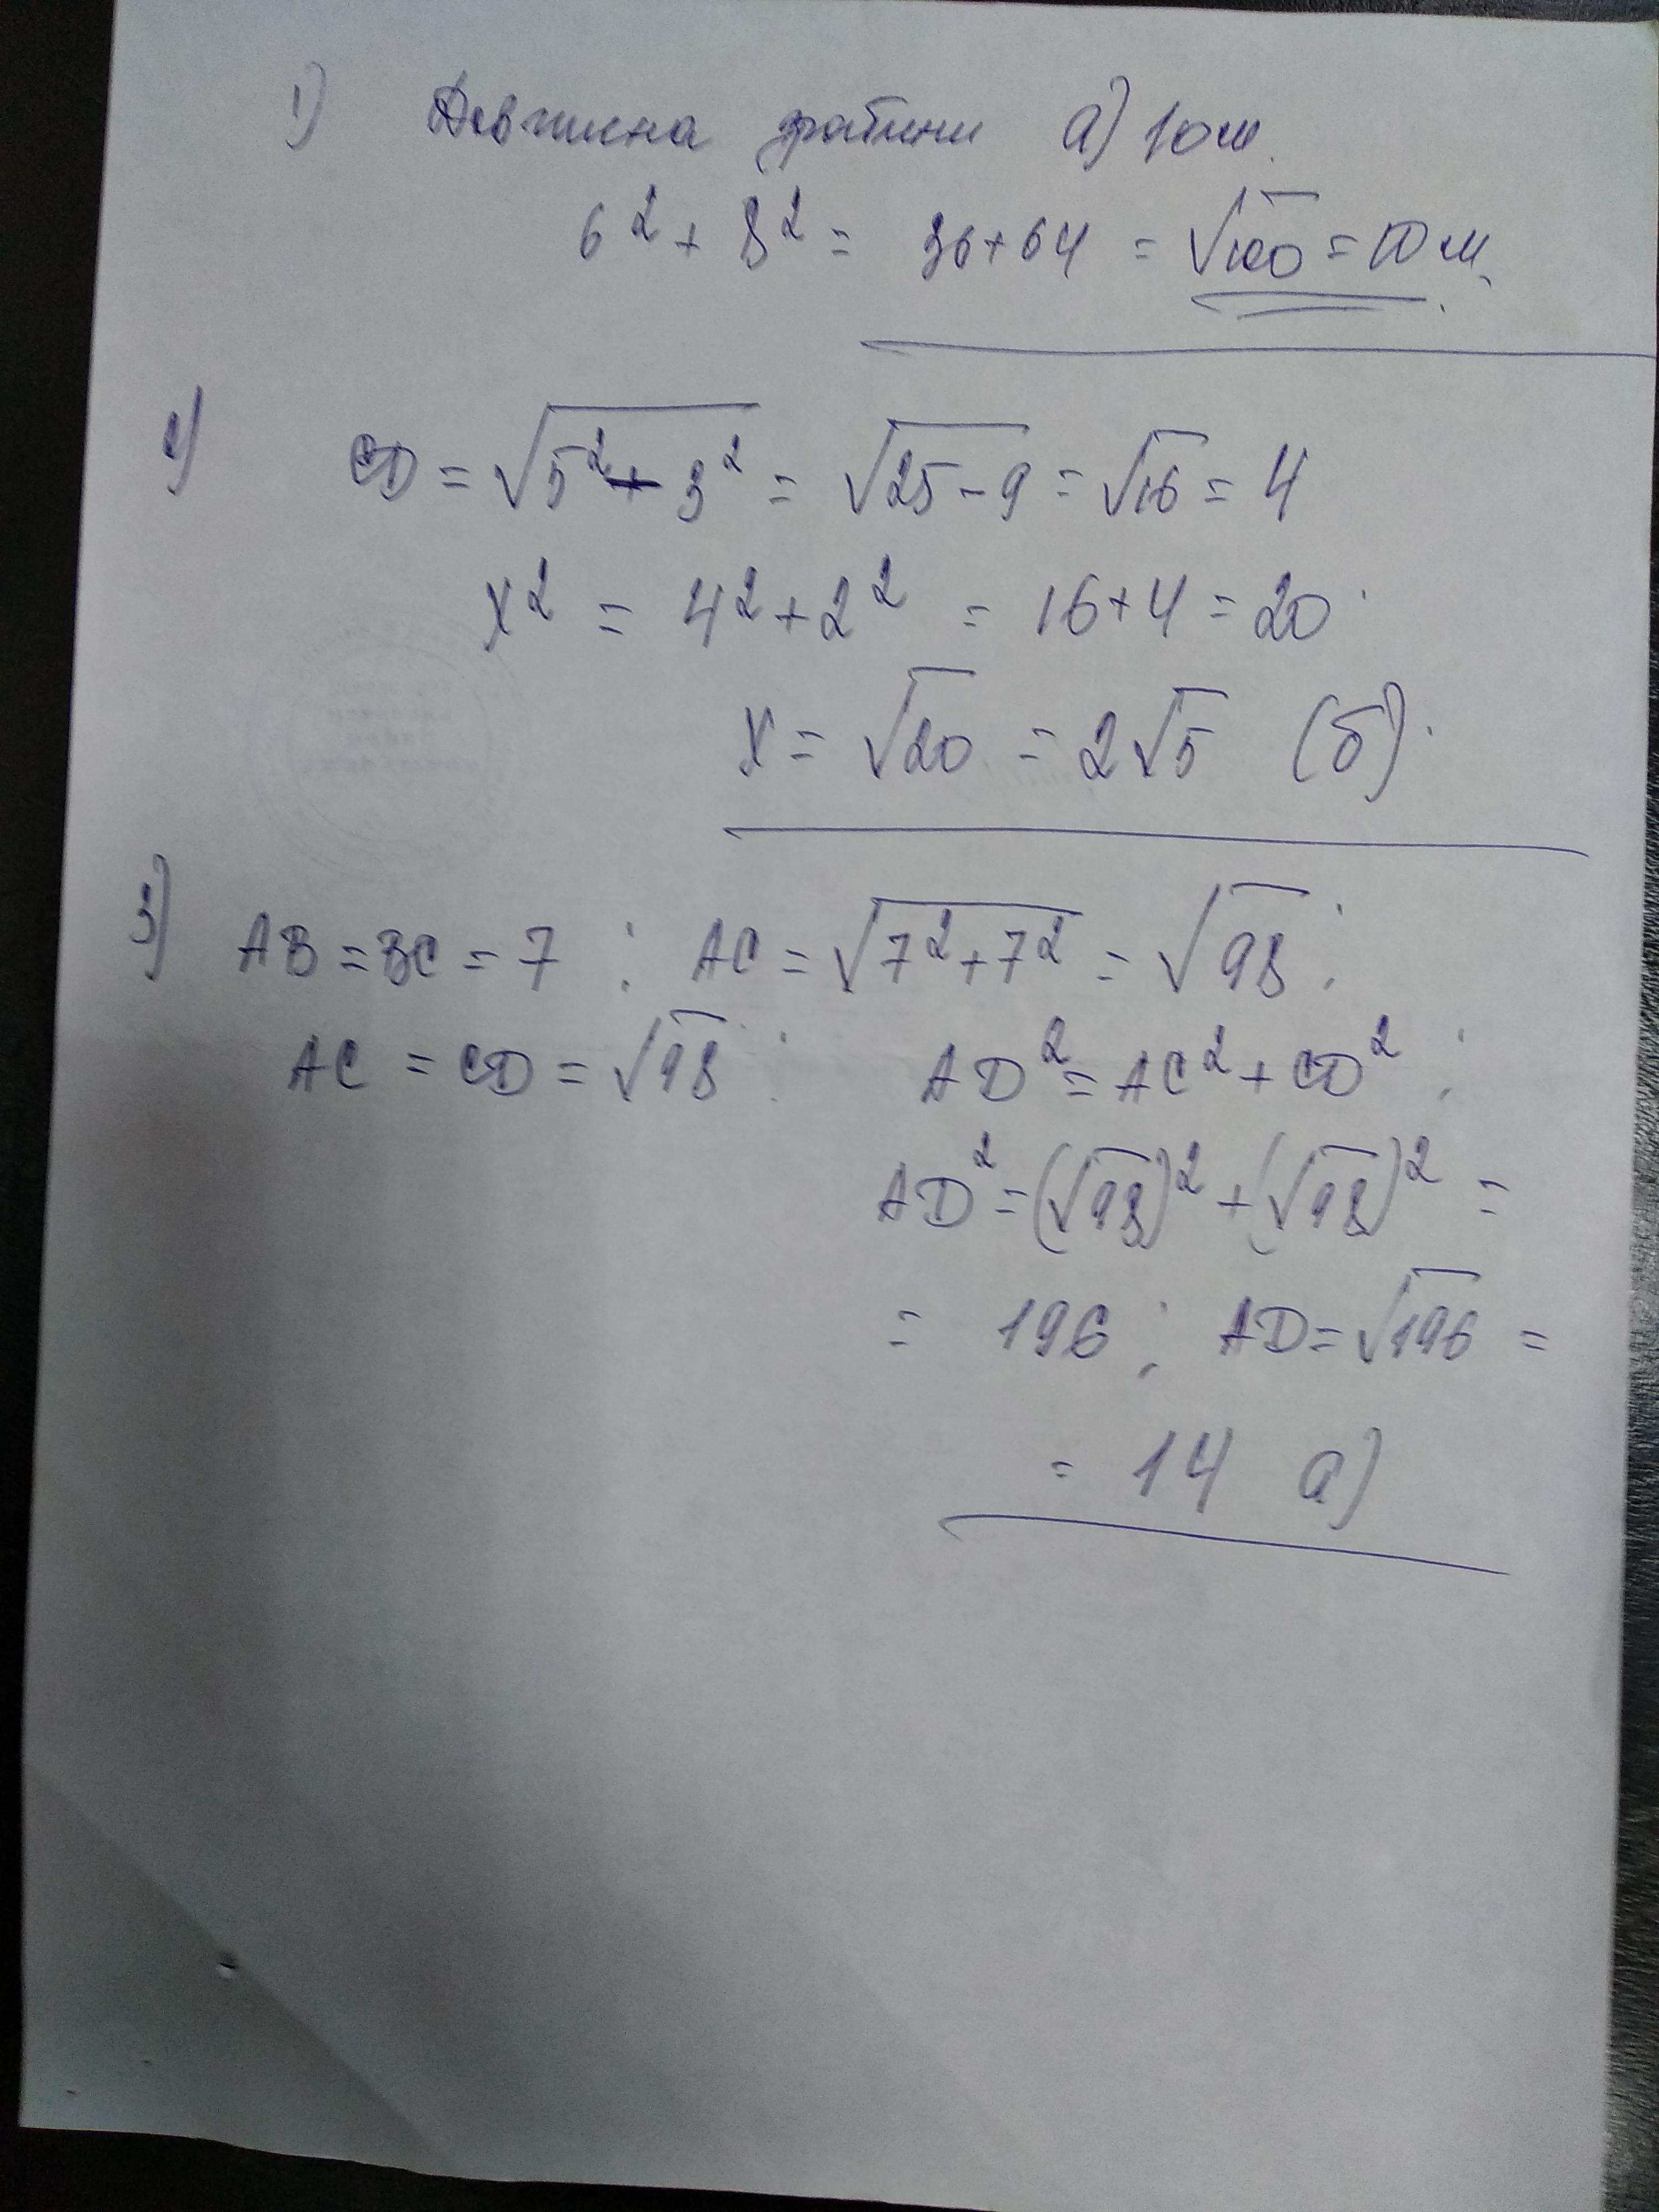 1) Довжина драбини а) 10м.
6² + 8² = 36+64 = √100 = 10 м.
2) CD = √5²+3² = √25-9 = √16 = 4
x² = 4²+2² = 16+4 = 20.
x = √20 = 2√5 (б).
3) AB = BC = 7 ; AC = √7²+7² = √98 ;
AC = CD = √98 ; AD² = AC² + CD² ;
AD² = (√98)² + (√98)² =
= 196 ; AD = √196 =
= 14 а)